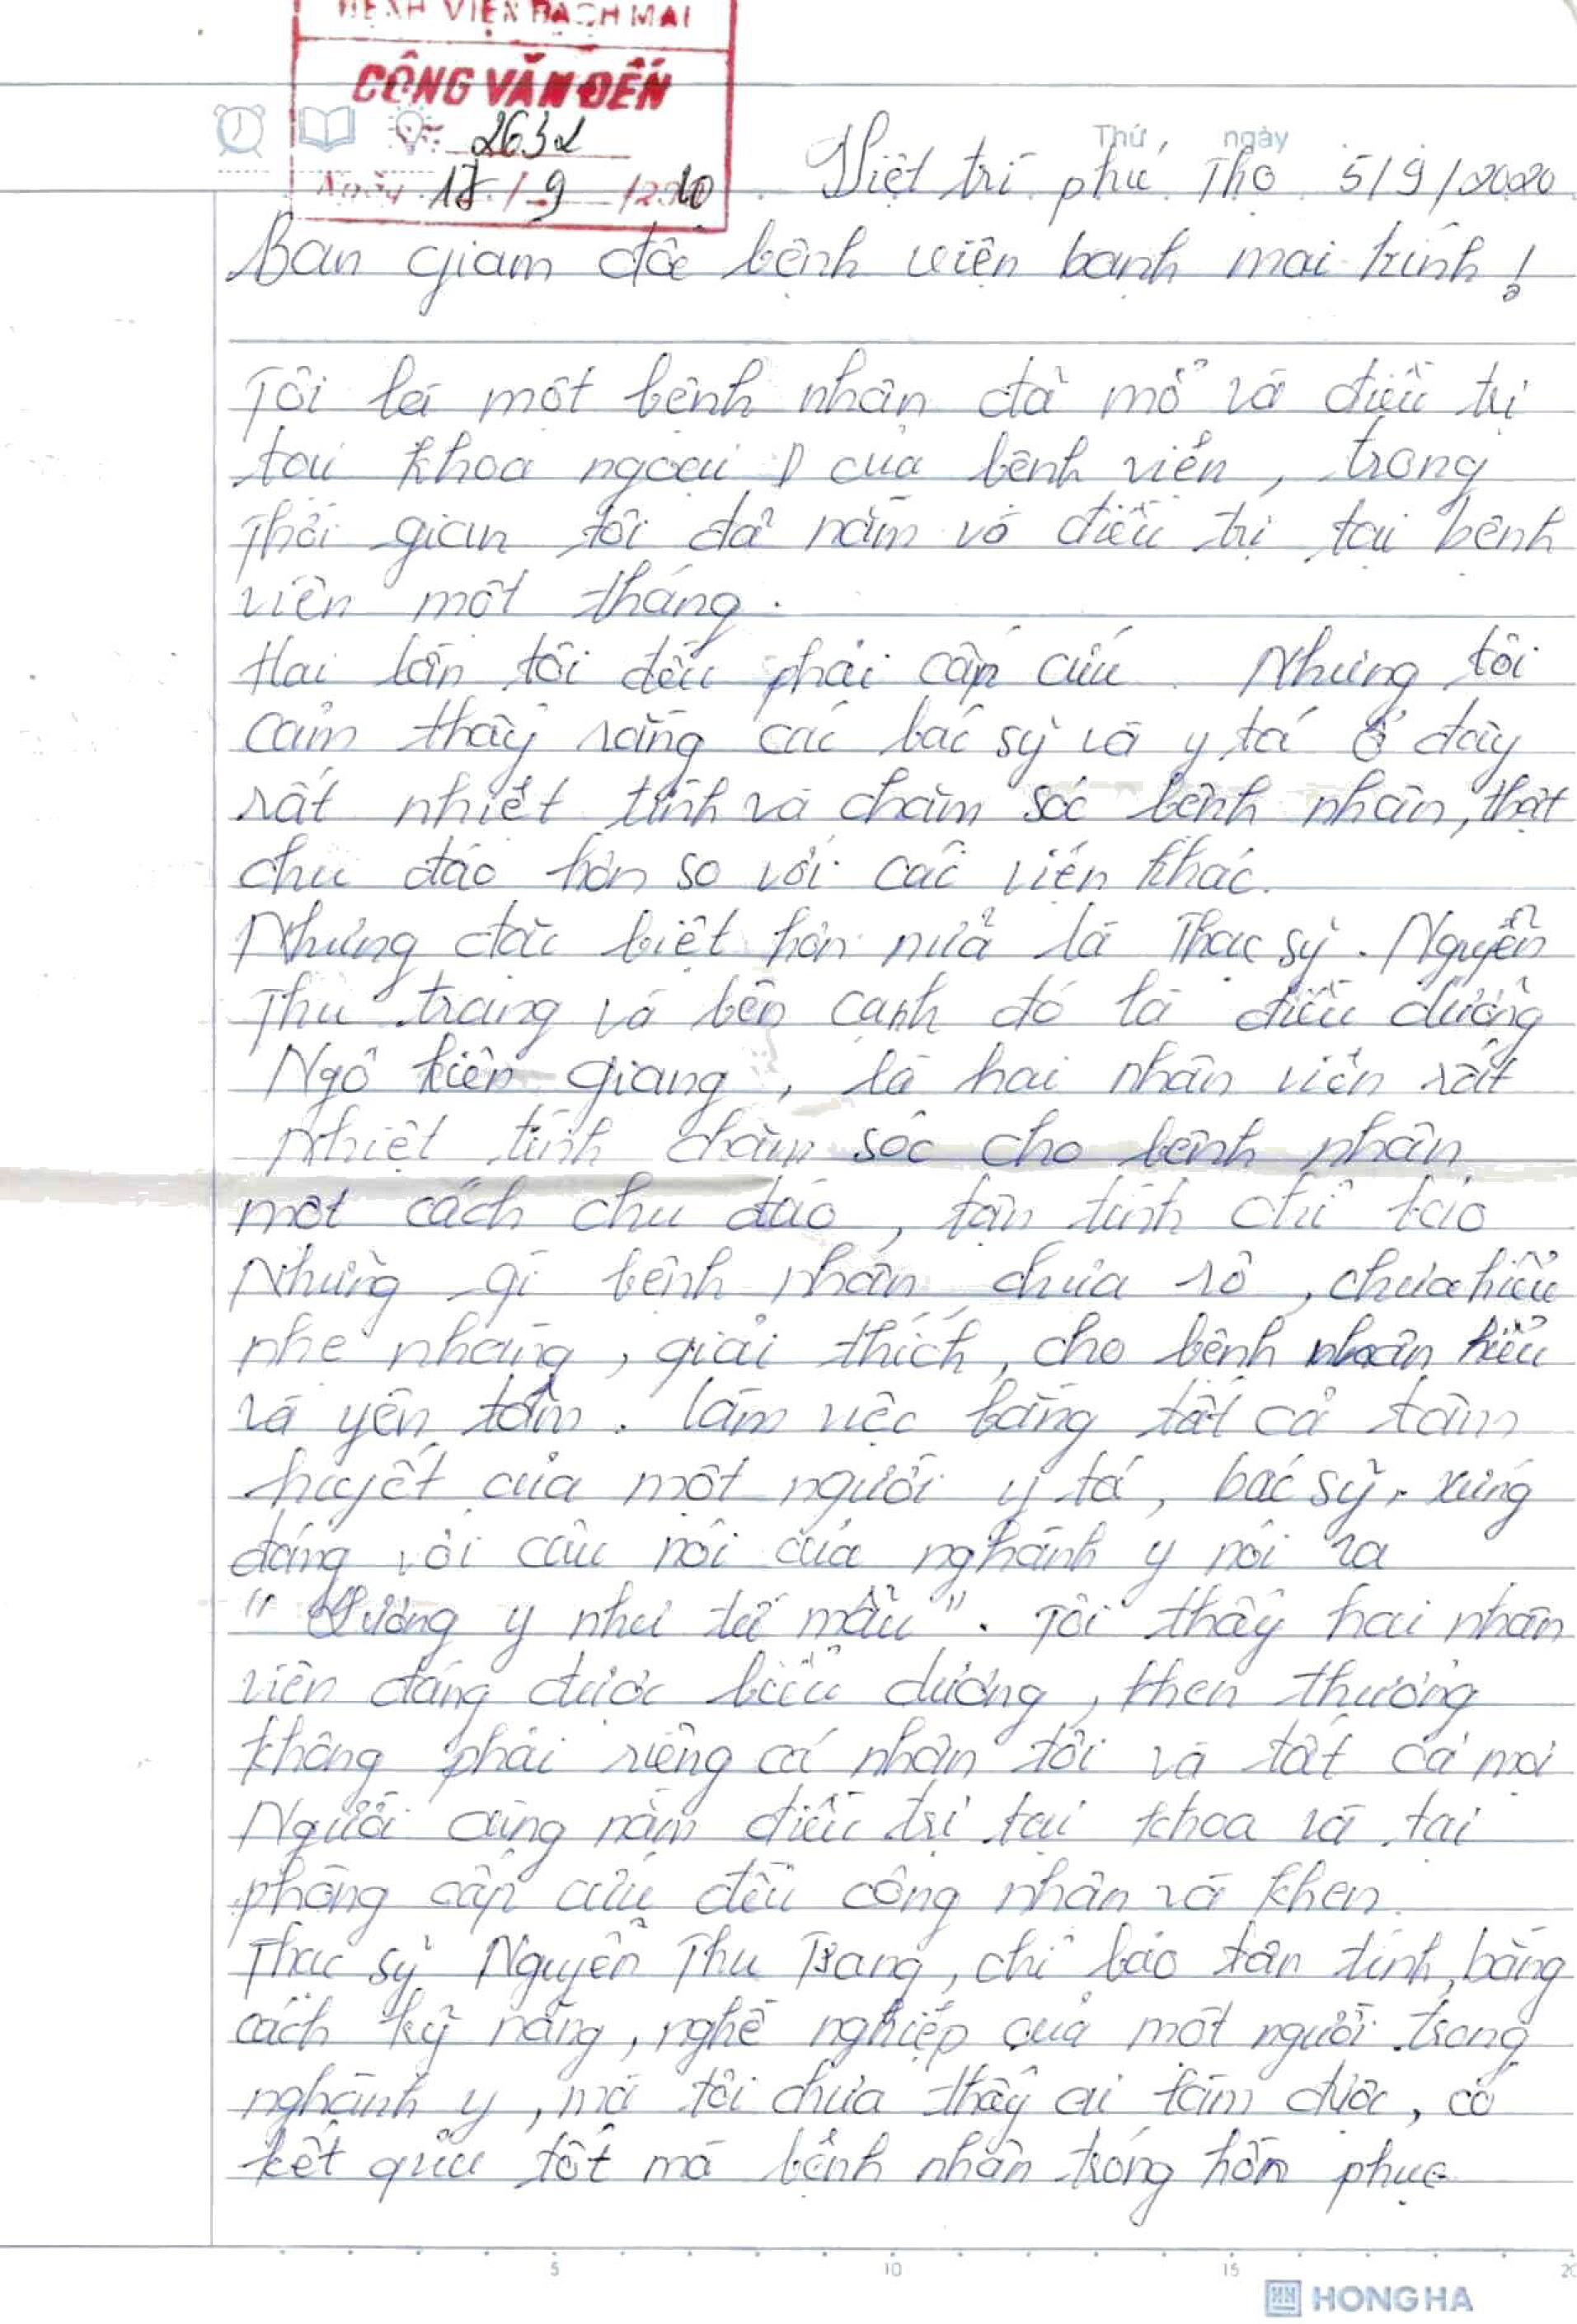 BỆNH VIỆN BẠCH MAI
CÔNG VĂN ĐẾN
2632
Ngày 17/9/2020
Thứ ngày
Việt trì phú Thọ 5/9/2020
Ban giám đốc bệnh viện banh mai kính!
Tôi là một bệnh nhân đã mổ và điều trị
tại khoa ngoại D của bệnh viện, trong
Thời gian tôi đã nằm và điều trị tại bệnh
viện một tháng.
Hai lần tôi đều phải cấp cứu. Nhưng tôi
cảm thấy rằng các bác sỹ và y tá ở đây
rất nhiệt tình và chăm sóc bệnh nhân, thật
chu đáo hơn so với các viện khác.
Nhưng đặc biệt hơn nữa là Thạc sỹ. Nguyễn
Thu trang và bên cạnh đó là điều dưỡng
Ngô kiên giang, là hai nhân viên rất
Nhiệt tình chăm sóc cho bệnh nhân
một cách chu đáo, tận tình chỉ bảo
Những gì bệnh nhân chưa rõ, chưa hiểu
nhẹ nhàng, giải thích, cho bệnh nhân hiểu
và yên tâm. làm việc bằng tất cả tâm
huyết của một người y tá, bác sỹ, xứng
đáng với câu nói của nghành y nói ra
" Lương y như từ mẫu". Tôi thấy hai nhân
viên đáng được biểu dương, khen thưởng
không phải riêng cá nhân tôi và tất cả mọi
Người cùng nằm điều trị tại khoa và tại
phòng cấp cứu đều công nhân và khen.
Thạc sỹ Nguyễn Thu Trang, chỉ bảo tận tình, bằng
cách kỹ năng, nghề nghiệp của một người trong
nghành y, mà tôi chưa thấy ai làm được, có
kết quả tốt mà bệnh nhân trong hôn phục
5 10 15 20
HONG HA